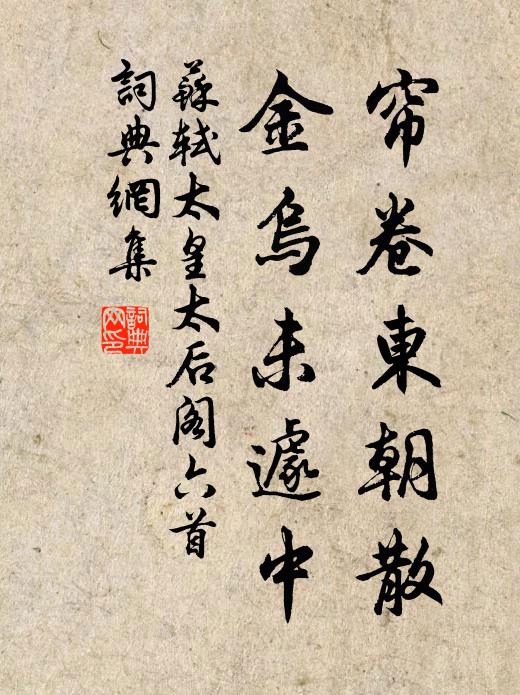 帘卷東朝散
金烏未遽中
蘇軾太皇太后閣六首
詞典網集
詞典
网印